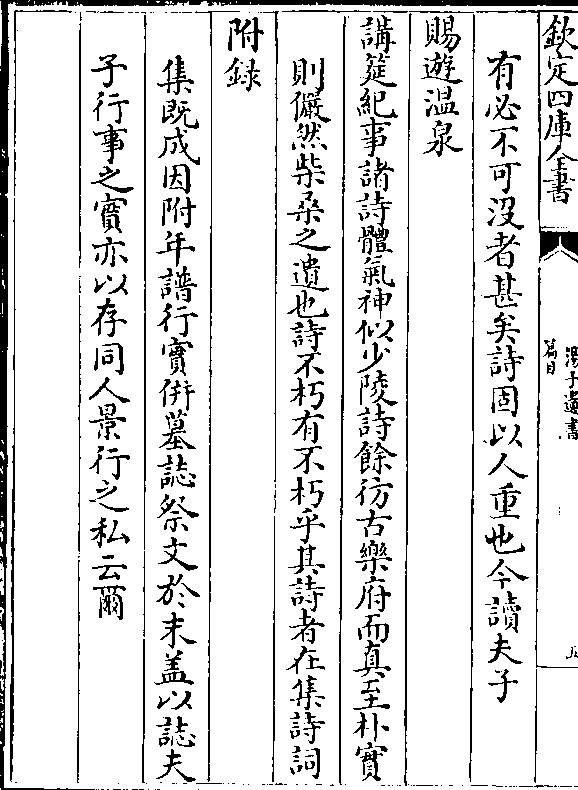 欽定四庫全書
湯子遺書
篇目
五
有必不可没者甚矣詩固以人重也今讀夫子
賜遊温泉
講筵紀事諸詩體氣神似少陵詩餘彷古樂府而真至朴實
則儼然柴桑之遺也詩不朽有不朽乎其詩者在集詩詞
附録
集既成因附年譜行實併墓誌祭文於末盖以誌夫
子行事之實亦以存同人景行之私云爾